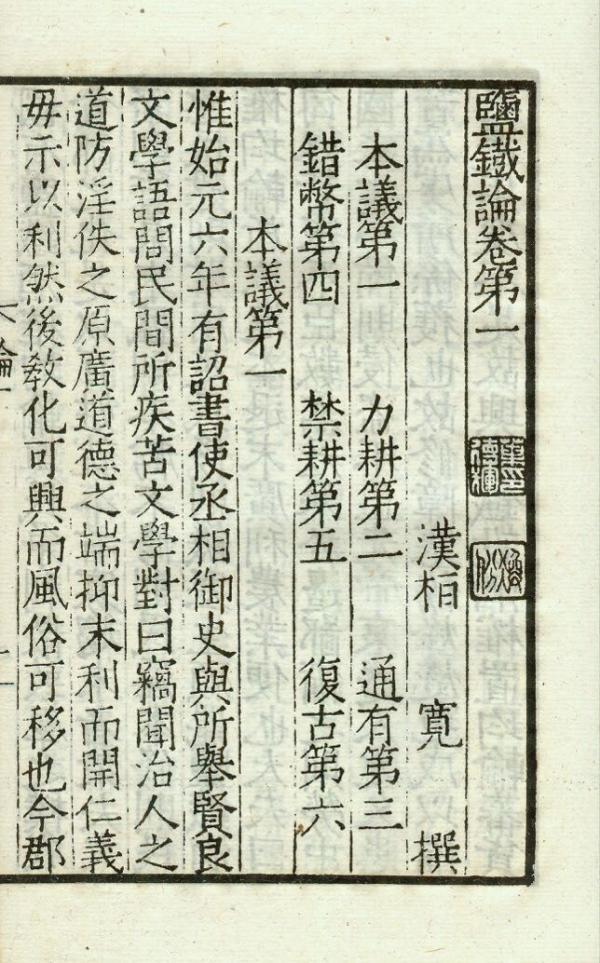 鹽鐵論卷第一
漢桓 寬 撰
本議第一 力耕第二 通有第三
錯幣第四 禁耕第五 復古第六
本議第一
惟始元六年有詔書使丞相御史與所舉賢良
文學語問民間所疾苦文學對曰竊聞治人之
道防淫佚之原廣道德之端抑末利而開仁義
毋示以利然後敎化可興而風俗可移也今郡